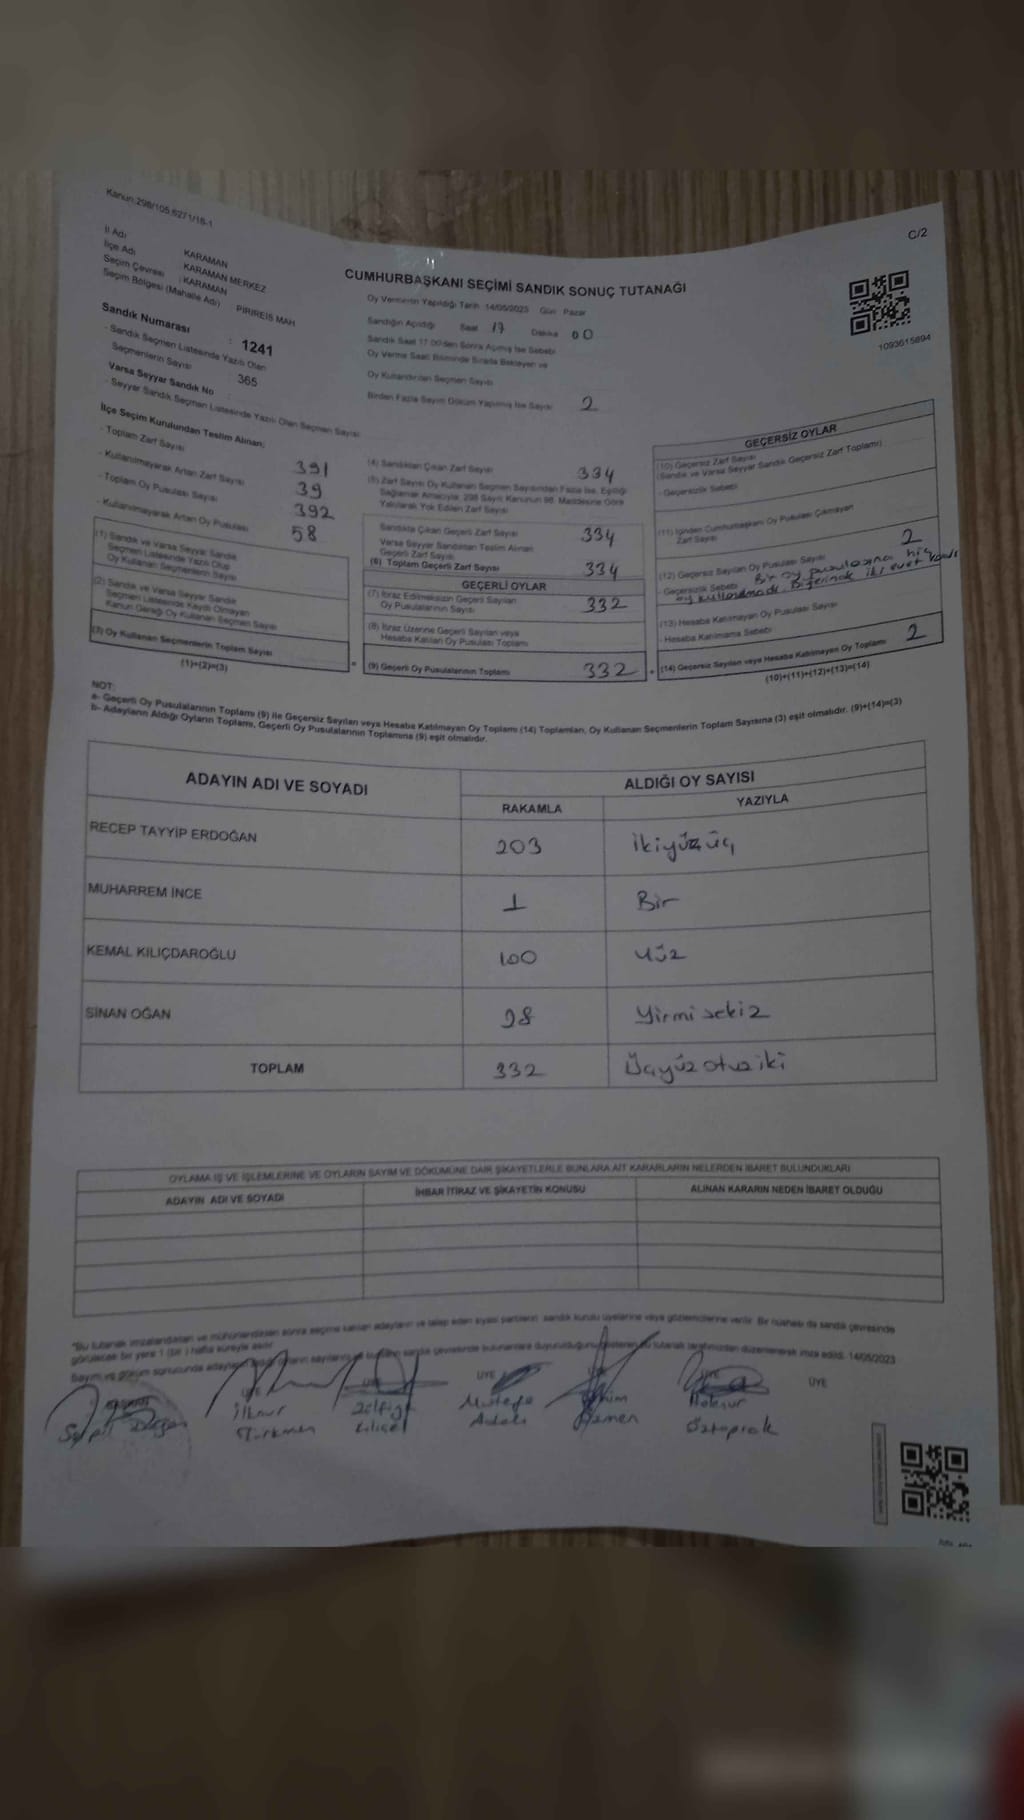 Kanun:298/105,6271/16-1
C/2
İl Adı : KARAMAN
İlçe Adı : KARAMAN MERKEZ
Seçim Çevresi : KARAMAN
Seçim Bölgesi (Mahalle Adı) : PİRİREİS MAH
Sandık Numarası : 1241
- Sandık Seçmen Listesinde Yazılı Olan
Seçmenlerin Sayısı : 365
Varsa Seyyar Sandık No :
- Seyyar Sandık Seçmen Listesinde Yazılı Olan Seçmen Sayısı
CUMHURBAŞKANI SEÇİMİ SANDIK SONUÇ TUTANAĞI
Oy Vermenin Yapıldığı Tarih 14/05/2023 Gün Pazar
Sandığın Açıldığı Saat 17 Dakika 00
Sandık Saat 17.00'den Sonra Açılmış İse Sebebi
Oy Verme Saati Bitiminde Sırada Bekleyen ve
Oy Kullandırılan Seçmen Sayısı
Birden Fazla Sayım Döküm Yapılmış İse Sayısı 2
1093615894
İlçe Seçim Kurulundan Teslim Alınan;
- Toplam Zarf Sayısı 391
- Kullanılmayarak Artan Zarf Sayısı 39
- Toplam Oy Pusulası Sayısı 392
- Kullanılmayarak Artan Oy Pusulası 58
(1) Sandık ve Varsa Seyyar Sandık
Seçmen Listesinde Yazılı Olup
Oy Kullanan Seçmenlerin Sayısı
(2) Sandık ve Varsa Seyyar Sandık
Seçmen Listesinde Kayıtlı Olmayan
Kanun Gereği Oy Kullanan Seçmen Sayısı
(3) Oy Kullanan Seçmenlerin Toplam Sayısı
(1)+(2)=(3)
(4) Sandıktan Çıkan Zarf Sayısı 334
(5) Zarf Sayısı Oy Kullanan Seçmen Sayısından Fazla İse, Eşitliği
Sağlamak Amacıyla; 298 Sayılı Kanunun 98. Maddesine Göre
Yakılarak Yok Edilen Zarf Sayısı
Sandıkta Çıkan Geçerli Zarf Sayısı 334
Varsa Seyyar Sandıktan Teslim Alınan
Geçerli Zarf Sayısı
(6) Toplam Geçerli Zarf Sayısı 334
GEÇERLİ OYLAR
(7) İtiraz Edilmeksizin Geçerli Sayılan
Oy Pusulalarının Sayısı 332
(8) İtiraz Üzerine Geçerli Sayılan veya
Hesaba Katılan Oy Pusulası Toplamı
(9) Geçerli Oy Pusulalarının Toplamı 332
GEÇERSİZ OYLAR
(10) Geçersiz Zarf Sayısı
(Sandık ve Varsa Seyyar Sandık Geçersiz Zarf Toplamı)
- Geçersizlik Sebebi
(11) İçinden Cumhurbaşkanı Oy Pusulası Çıkmayan
Zarf Sayısı
(12) Geçersiz Sayılan Oy Pusulası Sayısı 2
- Geçersizlik Sebebi Bir oy pusulasına hiç
oy kullanılmadı. Diğerinde iki evet
(13) Hesaba Katılmayan Oy Pusulası Sayısı
- Hesaba Katılmama Sebebi
(14) Geçersiz Sayılan veya Hesaba Katılmayan Oy Toplamı 2
(10)+(11)+(12)+(13)=(14)
NOT:
a- Geçerli Oy Pusulalarının Toplamı (9) ile Geçersiz Sayılan veya Hesaba Katılmayan Oy Toplamı (14) Toplamları, Oy Kullanan Seçmenlerin Toplam Sayısına (3) eşit olmalıdır. (9)+(14)=(3)
b- Adayların Aldığı Oyların Toplamı, Geçerli Oy Pusulalarının Toplamına (9) eşit olmalıdır.
ADAYIN ADI VE SOYADI
ALDIĞI OY SAYISI
RAKAMLA YAZIYLA
RECEP TAYYİP ERDOĞAN 203 İkiyüzüç
MUHARREM İNCE 1 Bir
KEMAL KILIÇDAROĞLU 100 Yüz
SİNAN OĞAN 28 Yirmisekiz
TOPLAM 332 Üçyüzotuziki
OYLAMA İŞ VE İŞLEMLERİNE VE OYLARIN SAYIM VE DÖKÜMÜNE DAİR ŞİKAYETLERLE BUNLARA AİT KARARLARIN NELERDEN İBARET BULUNDUKLARI
ADAYIN ADI VE SOYADI İHBAR İTİRAZ VE ŞİKAYETİN KONUSU ALINAN KARARIN NEDEN İBARET OLDUĞU
*Bu tutanak imzalandıktan ve mühürlendikten sonra seçime katılan adayların ve talep eden siyasi partilerin sandık kurulu üyelerine veya gözlemcilerine verilir. Bir nüshası da sandık çevresinde
görülecek bir yere 1 (bir) hafta süreyle asılır.
14/05/2023
ÜYE ÜYE ÜYE
İlknur
Türkmen
Mustafa
Öztoprak